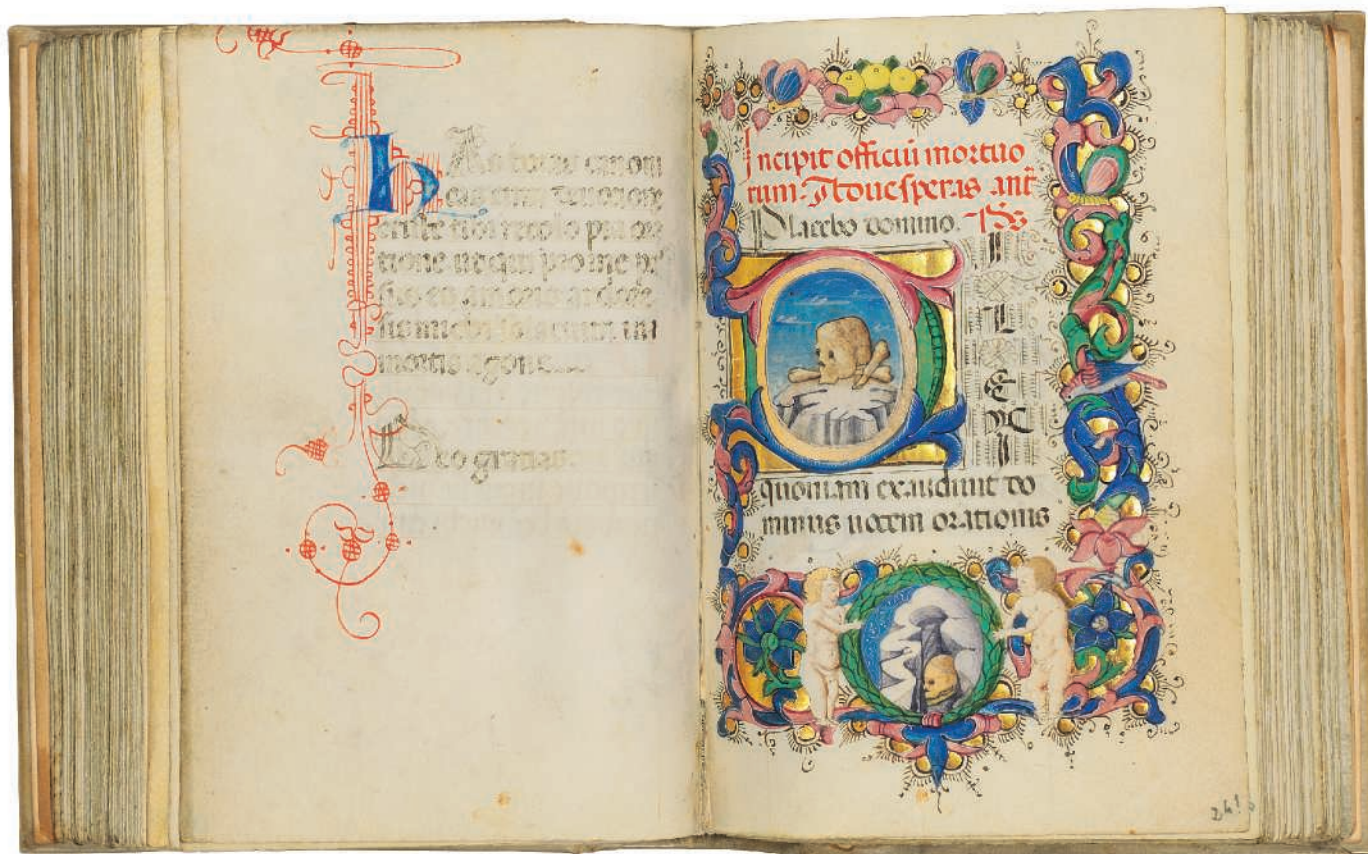 hAs horas canoni
cas cum
tibi recolo pia
tione ut qui pro me
amoris ardore
sis michi solacium in
mortis agone
Deo gratias.
Incipit officiū mortuo
rum. Ad uesperas ant̄
Placebo domino. Ps̄
D I
L
E
X
I
quoniam exaudiuit do
minus uocem orationis
241